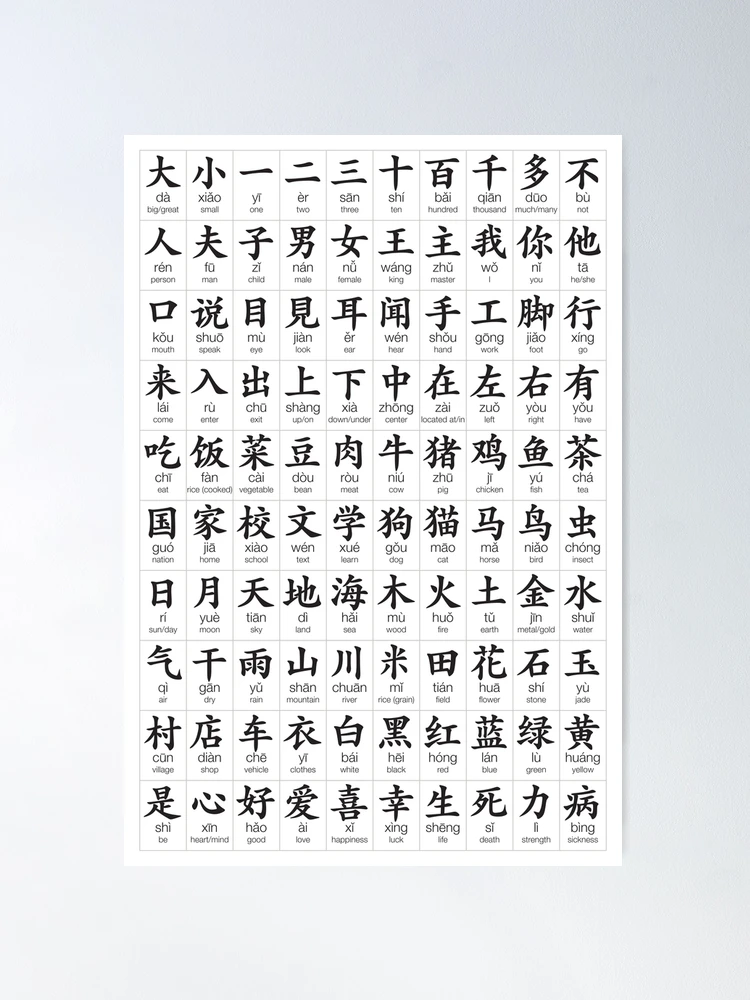 大 小 一 二 三 十 百 千 多 不
dà xiǎo yī èr sān shí bǎi qiān duō bù
big/great small one two three ten hundred thousand much/many not
人 夫 子 男 女 王 主 我 你 他
rén fū zǐ nán nǚ wáng zhǔ wǒ nǐ tā
person man child male female king master I you he/she
口 说 目 見 耳 闻 手 工 脚 行
kǒu shuō mù jiàn ěr wén shǒu gōng jiǎo xíng
mouth speak eye look ear hear hand work foot go
来 入 出 上 下 中 在 左 右 有
lái rù chū shàng xià zhōng zài zuǒ yòu yǒu
come enter exit up/on down/under center located at/in left right have
吃 饭 菜 豆 肉 牛 猪 鸡 鱼 茶
chī fàn cài dòu ròu niú zhū jī yú chá
eat rice (cooked) vegetable bean meat cow pig chicken fish tea
国 家 校 文 学 狗 猫 马 鸟 虫
guó jiā xiào wén xué gǒu māo mǎ niǎo chóng
nation home school text learn dog cat horse bird insect
日 月 天 地 海 木 火 土 金 水
rí yuè tiān dì hǎi mù huǒ tǔ jīn shuǐ
sun/day moon sky land sea wood fire earth metal/gold water
气 干 雨 山 川 米 田 花 石 玉
qì gān yǔ shān chuān mǐ tián huā shí yù
air dry rain mountain river rice (grain) field flower stone jade
村 店 车 衣 白 黑 红 蓝 绿 黄
cūn diàn chē yī bái hēi hóng lán lù huáng
village shop vehicle clothes white black red blue green yellow
是 心 好 爱 喜 幸 生 死 力 病
shì xīn hǎo ài xǐ xìng shēng sǐ lì bìng
be heart/mind good love happiness luck life death strength sickness